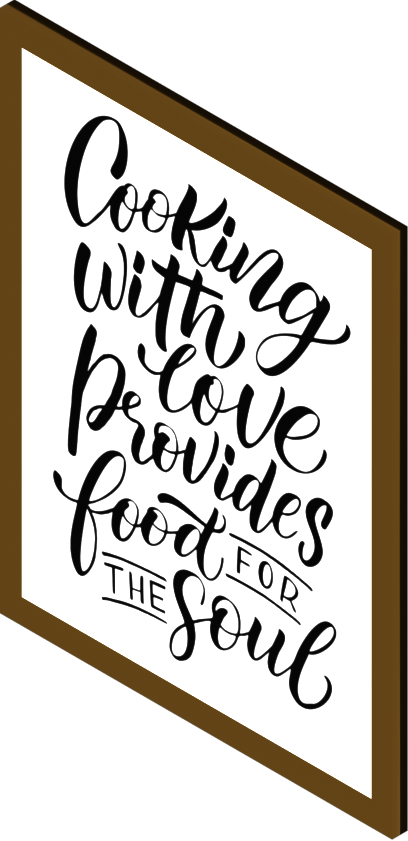 Cooking
with
love
provides
food FOR
THE Soul